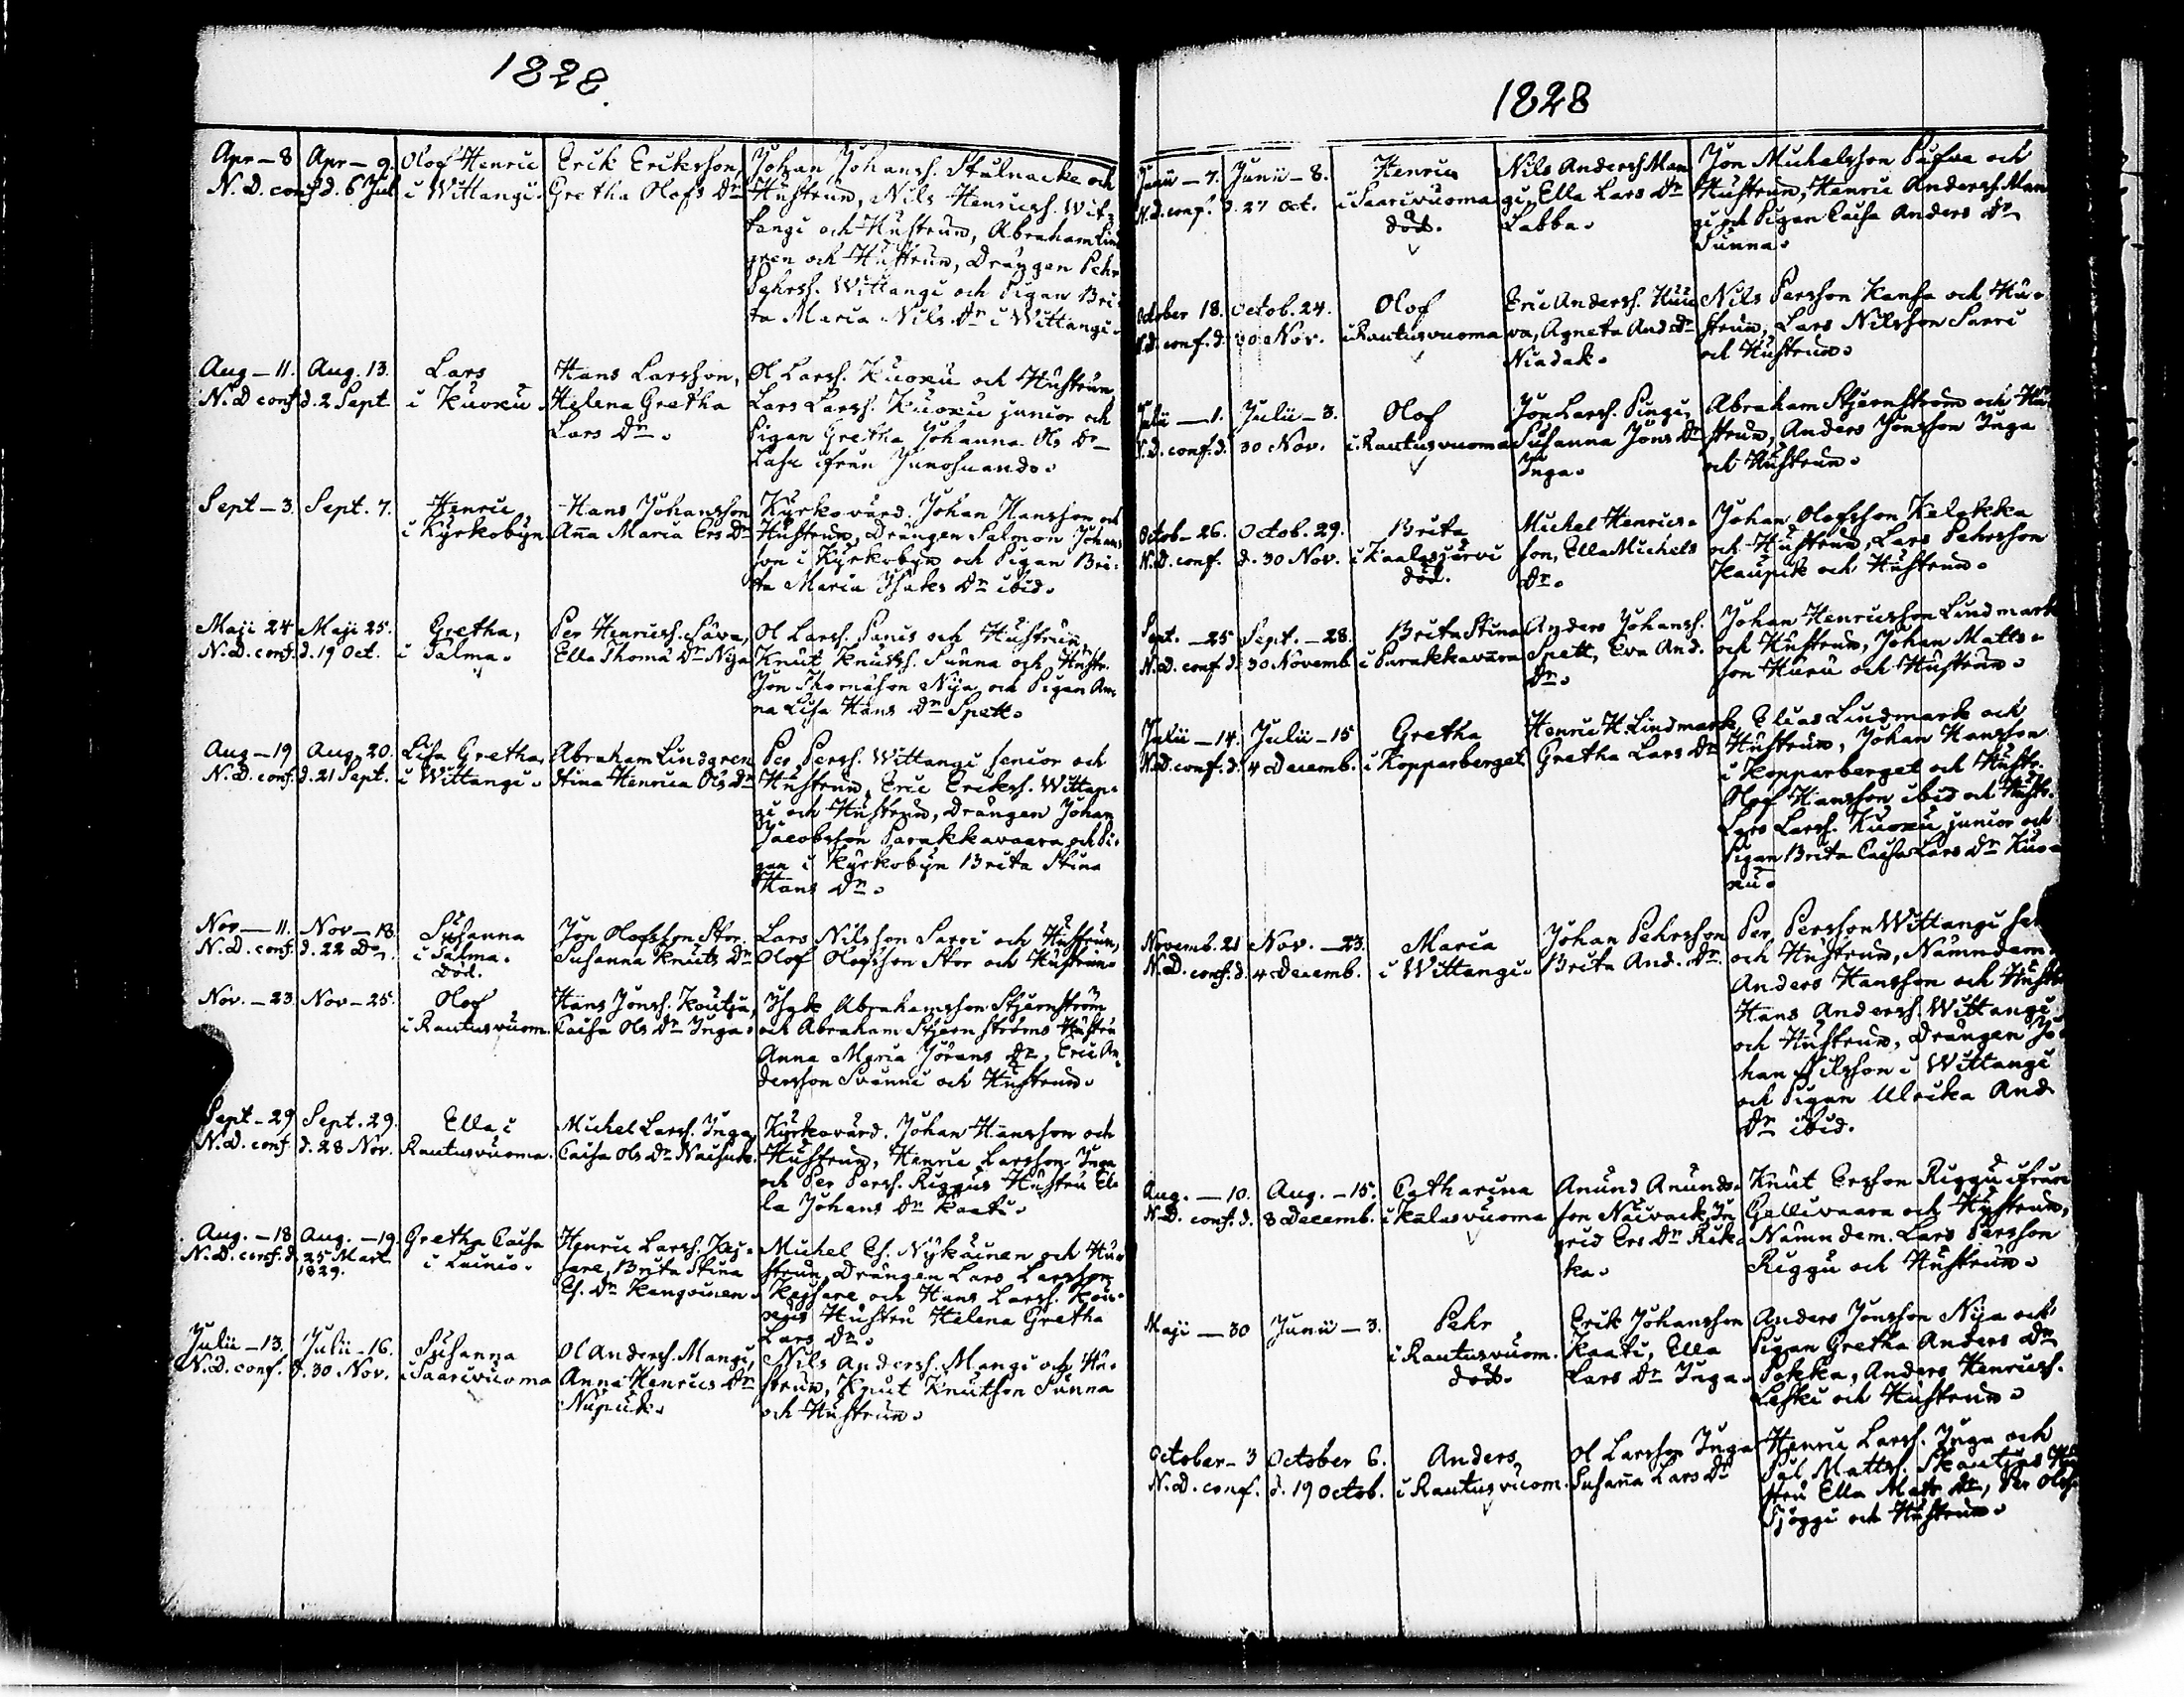 1828.
Apr – 8 Apr – 9. Olof Henric Erik Eriksson, Johan Johanss. Stålnacke och
N. D. conf. d. 6 Jul. i Wittangi. Gretha Olofs Dr Hustrun, Nils Henricss. Wit-
tangi och Hustrun, Abraham Lind
gren och Hustrun, Drängen Pehr
Pehrss. Wittangi och Pigan Bri-
ta Maria Nils Dr i Wittangi.
Aug – 11. Aug. 13. Lars Hans Larsson, Ol Larss. Kuoxu och Hustrun
N. D conf. d. 2 Sept. i Kuoxu. Helena Gretha Lars Larss. Kuoxu junior och
Lars Dr. Pigan Gretha Johanna Ols Dr
ifrån Junosuando.
Sept – 3. Sept. 7. Henric Hans Johansson Kyrkovärd. Johan Hansson och
i Kyrkobyn Anna Maria Ers Dr Hustrun, Drängen Salmon Johans
son i Kyrkobyn och Pigan Bri-
ta Maria Isaks Dr ibid.
Maji 24 Maji 25. Gretha, Per Henricss. Såva, Ol Larss. Panis och Hustrun
N. D. conf. d. 19 Oct. i Talma. Ella Thoma Dr Nija Knut Knutss. Sunna och Hustr.
Jon Thomasson Nija och Pigan An-
na Lisa Hans Dr Spett.
Aug – 19 Aug. 20. Lisa Gretha, Abraham Lindgren Per Perss. Wittangi senior och
N. D. conf. d. 21 Sept. i Wittangi. Stina Henrica Ols Dr Hustrun, Eric Erikss. Wittan-
gi och Hustrun, Drängen Johan
Jacobsson Parakkavaara och Pi-
gan i Kyrkobyn Brita Stina
Hans Dr.
Nov – 11. Nov – 13. Susanna Jon Olofsson Stor. Lars Nilsson Sarri och Hustrun,
N. D. conf. d. 22 Dr. i Talma. Susanna Knuts Dr Olof Olofsson Stor och Hustrun.
död.
Nov. – 23 Nov – 25. Olof Hans Jonss. Koutja, Isak Abrahamsson Stjernström
i Rautusvuom. Caisa Ols Dr Inga. och Abraham Stjernströms Hustru
Anna Maria Jörans Dr, Eric An-
dersson Svanni och Hustrun.
Sept – 29 Sept. 29. Ella i Michel Larss. Inga, Kyrkovärd. Johan Hansson och
N. D. conf. d. 28 Nov. Rautusvuoma. Caisa Ols Dr Hustrun, Henric Larsson Inga
och Per Perss. Riggus Hustru El-
la Johans Dr Kaati.
Aug. – 18 Aug. – 19. Gretha Caisa Henric Larss. Kej- Michel Es. Nykäinen och Hu-
N. D. conf. d. 25 Mart. i Lainio. sare, Brita Stina strun, Drängen Lars Larsson
1829. Es. Dr Kangoinen. Kejsare och Hans Larss.
Hustru Helena Gretha
Lars Dr.
Julii – 13. Julii – 16. Susanna Ol Anderss. Mangi, Nils Anderss. Mangi och Hu-
N. D. conf. d. 30 Nov. i Saarivuoma Anna Henrics Dr strun, Knut Knutson Sunna
Nupuk. och Hustrun.
1828
Junii – 7. Junii – 8. Henric Nils Anderss Man Jon Michelsson Påfva och
N. D. conf. d. 27 Oct. i Saarivuoma gi, Ella Lars Dr Hustrun, Henric Anderss. Man
död. Labba. gi och Pigan Caisa Anders Dr
Sunna.
October 18. Octob. 24. Olof Eric Anderss. Huu Nils Persson Kanfa och Hu-
N. D. conf. d. 30 Nov. i Rautusvuoma va, Agneta And. Dr strun, Lars Nilsson Sarri
Niadak. och Hustrun.
Julii – 1. Julii – 3. Olof Jon Larss. Pingi, Abraham Stjernström och Hu
N. D. conf. d. 30 Nov. i Rautusvuoma Susanna Jons Dr strun, Anders Jonsson Inga
Inga. och Hustrun.
Octob – 26. Octob. 29. Brita Michel Henrics- Johan Olofsson Kelokka
N. D. conf. d. 30 Nov. i Kaalasjärvi son, Ella Michels och Hustrun, Lars Pehrsson
död. Dr. Kaupik och Hustrun.
Sept. – 25 Sept. – 28. Brita Stina Anders Johanss. Johan Henricsson Lindmark
N. D. conf. d. 30 Novemb. i Parakkavara Spett, Eva And. och Hustrun, Johan Matts-
Dr. son Huru och Hustrun.
Julii – 14. Julii – 15 Gretha Henric H. Lindmark Elias Lindmark och
N. D. conf. d. 4 Decemb. i Kopparberget Gretha Lars Dr Hustrun, Johan Hansson
i Kopparberget och Hustr.
Olof Hansson ibid och Hustr.
Lars Larss. Kuoxu junior och
Pigan Brita Caisa Lars Dr Kuo-
xu.
Novemb. 21 Nov. – 23. Maria Johan Pehrsson Per Persson Wittangi sen
N. D. conf. d. 4 Decemb. i Wittangi. Brita And. Dr. och Hustrun, Nämndem.
Anders Hansson och Hustr
Hans Anderss. Wittangi
och Hustrun, Drängen Jo-
han Nilsson i Wittangi
och Pigan Ulrika And.
Dr ibid.
Aug. – 10. Aug. – 15. Catharina Anund Anunds- Knut Ersson Riggu ifrån
N. D. conf. d. 8 Decemb. i Kalasvuoma son Naivack, In Gellivaara och Hustrun,
grid Ers Dr Rik- Nämndem. Lars Persson
ka. Riggu och Hustrun.
Maji – 30 Junii – 3. Pehr Erik Johansson Anders Jonsson Nija och
i Rautusvuom. Kaati, Ella Pigan Gretha Anders Dr
död. Lars Dr Inga. Pokka, Anders Henricss.
Leski och Hustrun.
October – 3 October 6. Anders Ol Larsson Inga Henric Larss. Inga och
N. D. conf. d. 19 Octob. i Rautusvuom. Susanna Lars Dr Pål Mattss. Skautjas Hu
stru Ella Matts Dr, Per Olss.
och Hustrun.